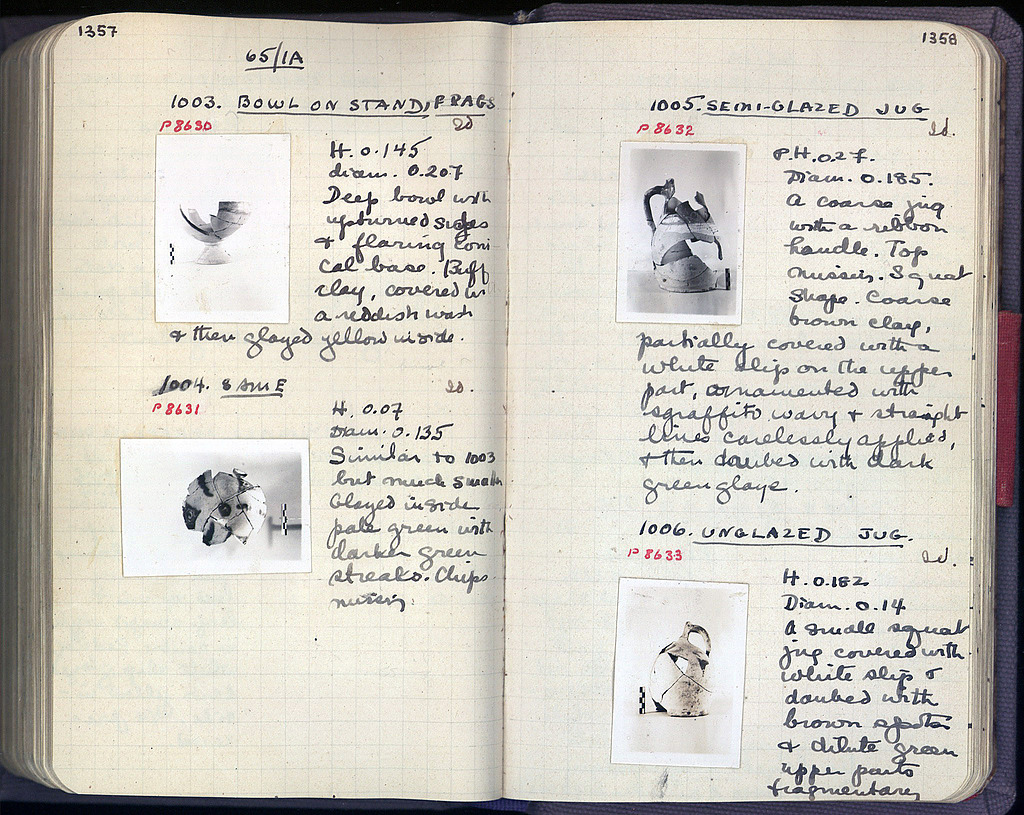 1357
65/1A
1003. BOWL ON STAND, FRAGS
P 8630
Id
H. 0.145
diam. 0.207
Deep bowl with
upturned sides
& flaring coni
cal base. Buff
clay, covered in
a reddish wash
& then glazed yellow inside.
1004. SAME
Id.
P 8631
H. 0.07
Diam. 0.135
Similar to 1003
but much smaller
Glazed inside
pale green with
darker green
streaks. Chips
missing.
1358
1005. SEMI-GLAZED JUG
P 8632
Id.
P.H. 0.27.
Diam. 0.185.
A coarse jug
with a ribbon
handle. Top
missing. Squat
shape. Coarse
brown clay,
partially covered with a
white slip on the upper
part, ornamented with
sgraffito wavy & straight
lines carelessly applied,
& then daubed with dark
green glaze.
1006. UNGLAZED JUG.
P 8633
Id.
H. 0.182
Diam. 0.14
A small squat
jug covered with
white slip &
daubed with
brown spots
& dilute green
upper parts
fragmentary